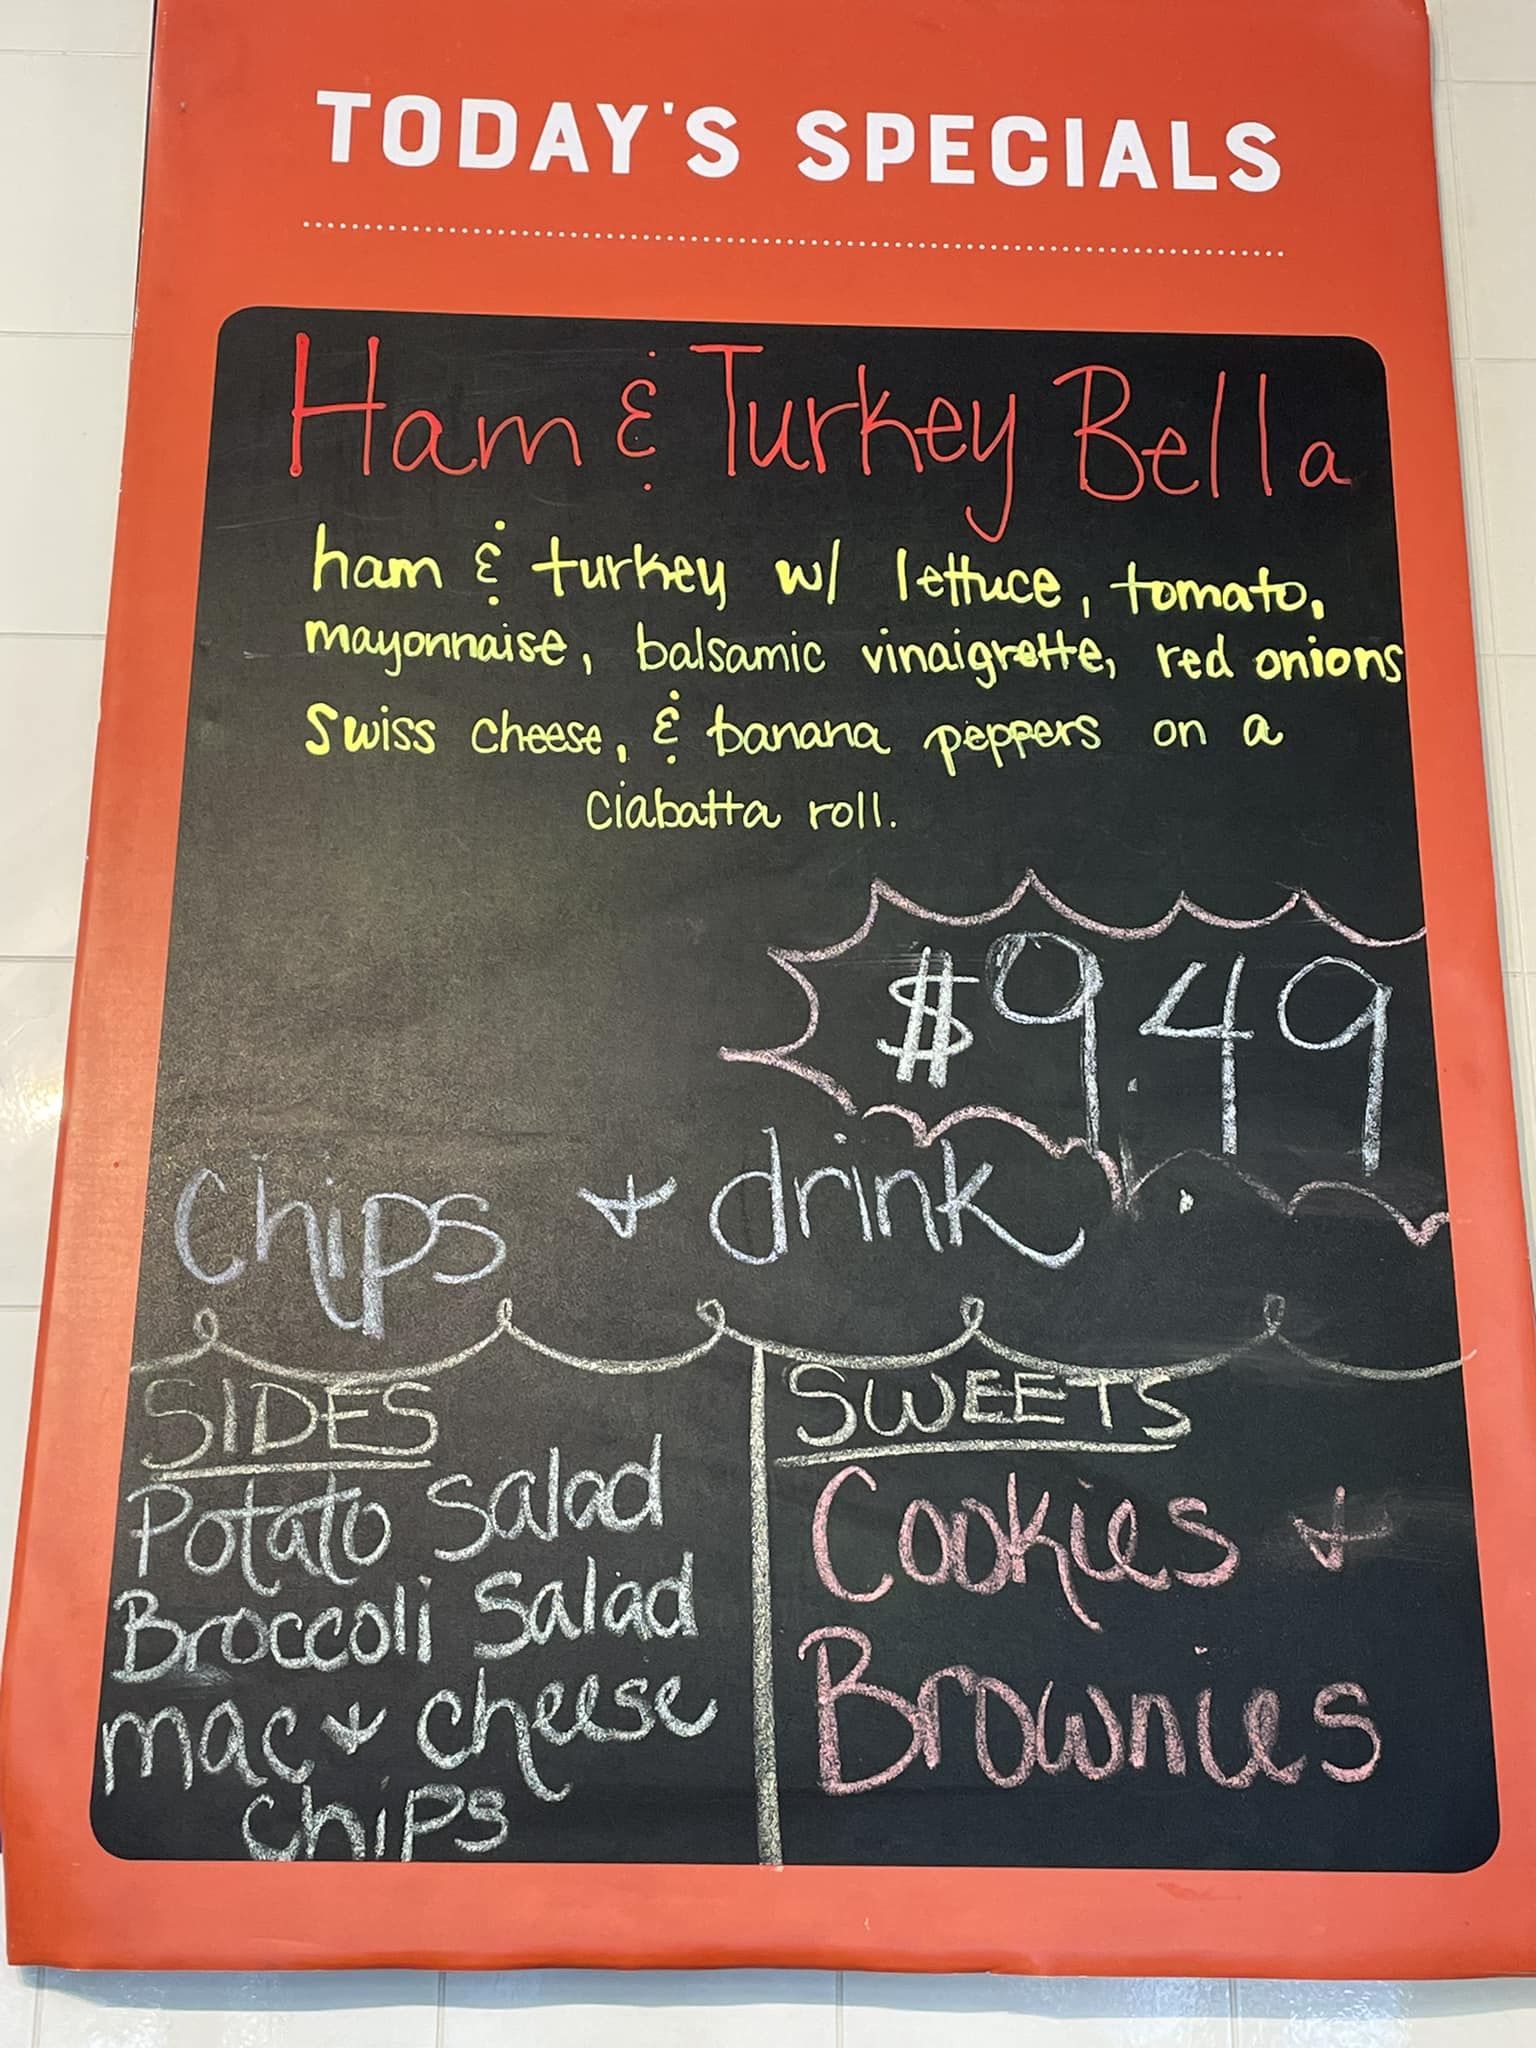 TODAY'S SPECIALS
Ham & Turkey Bella
ham & turkey w/ lettuce, tomato,
mayonnaise, balsamic vinaigrette, red onions
Swiss cheese, & banana peppers on a
ciabatta roll.
$9.49
Chips + drink
SIDES
Potato Salad
Broccoli Salad
mac + cheese
Chips
SWEETS
Cookies +
Brownies